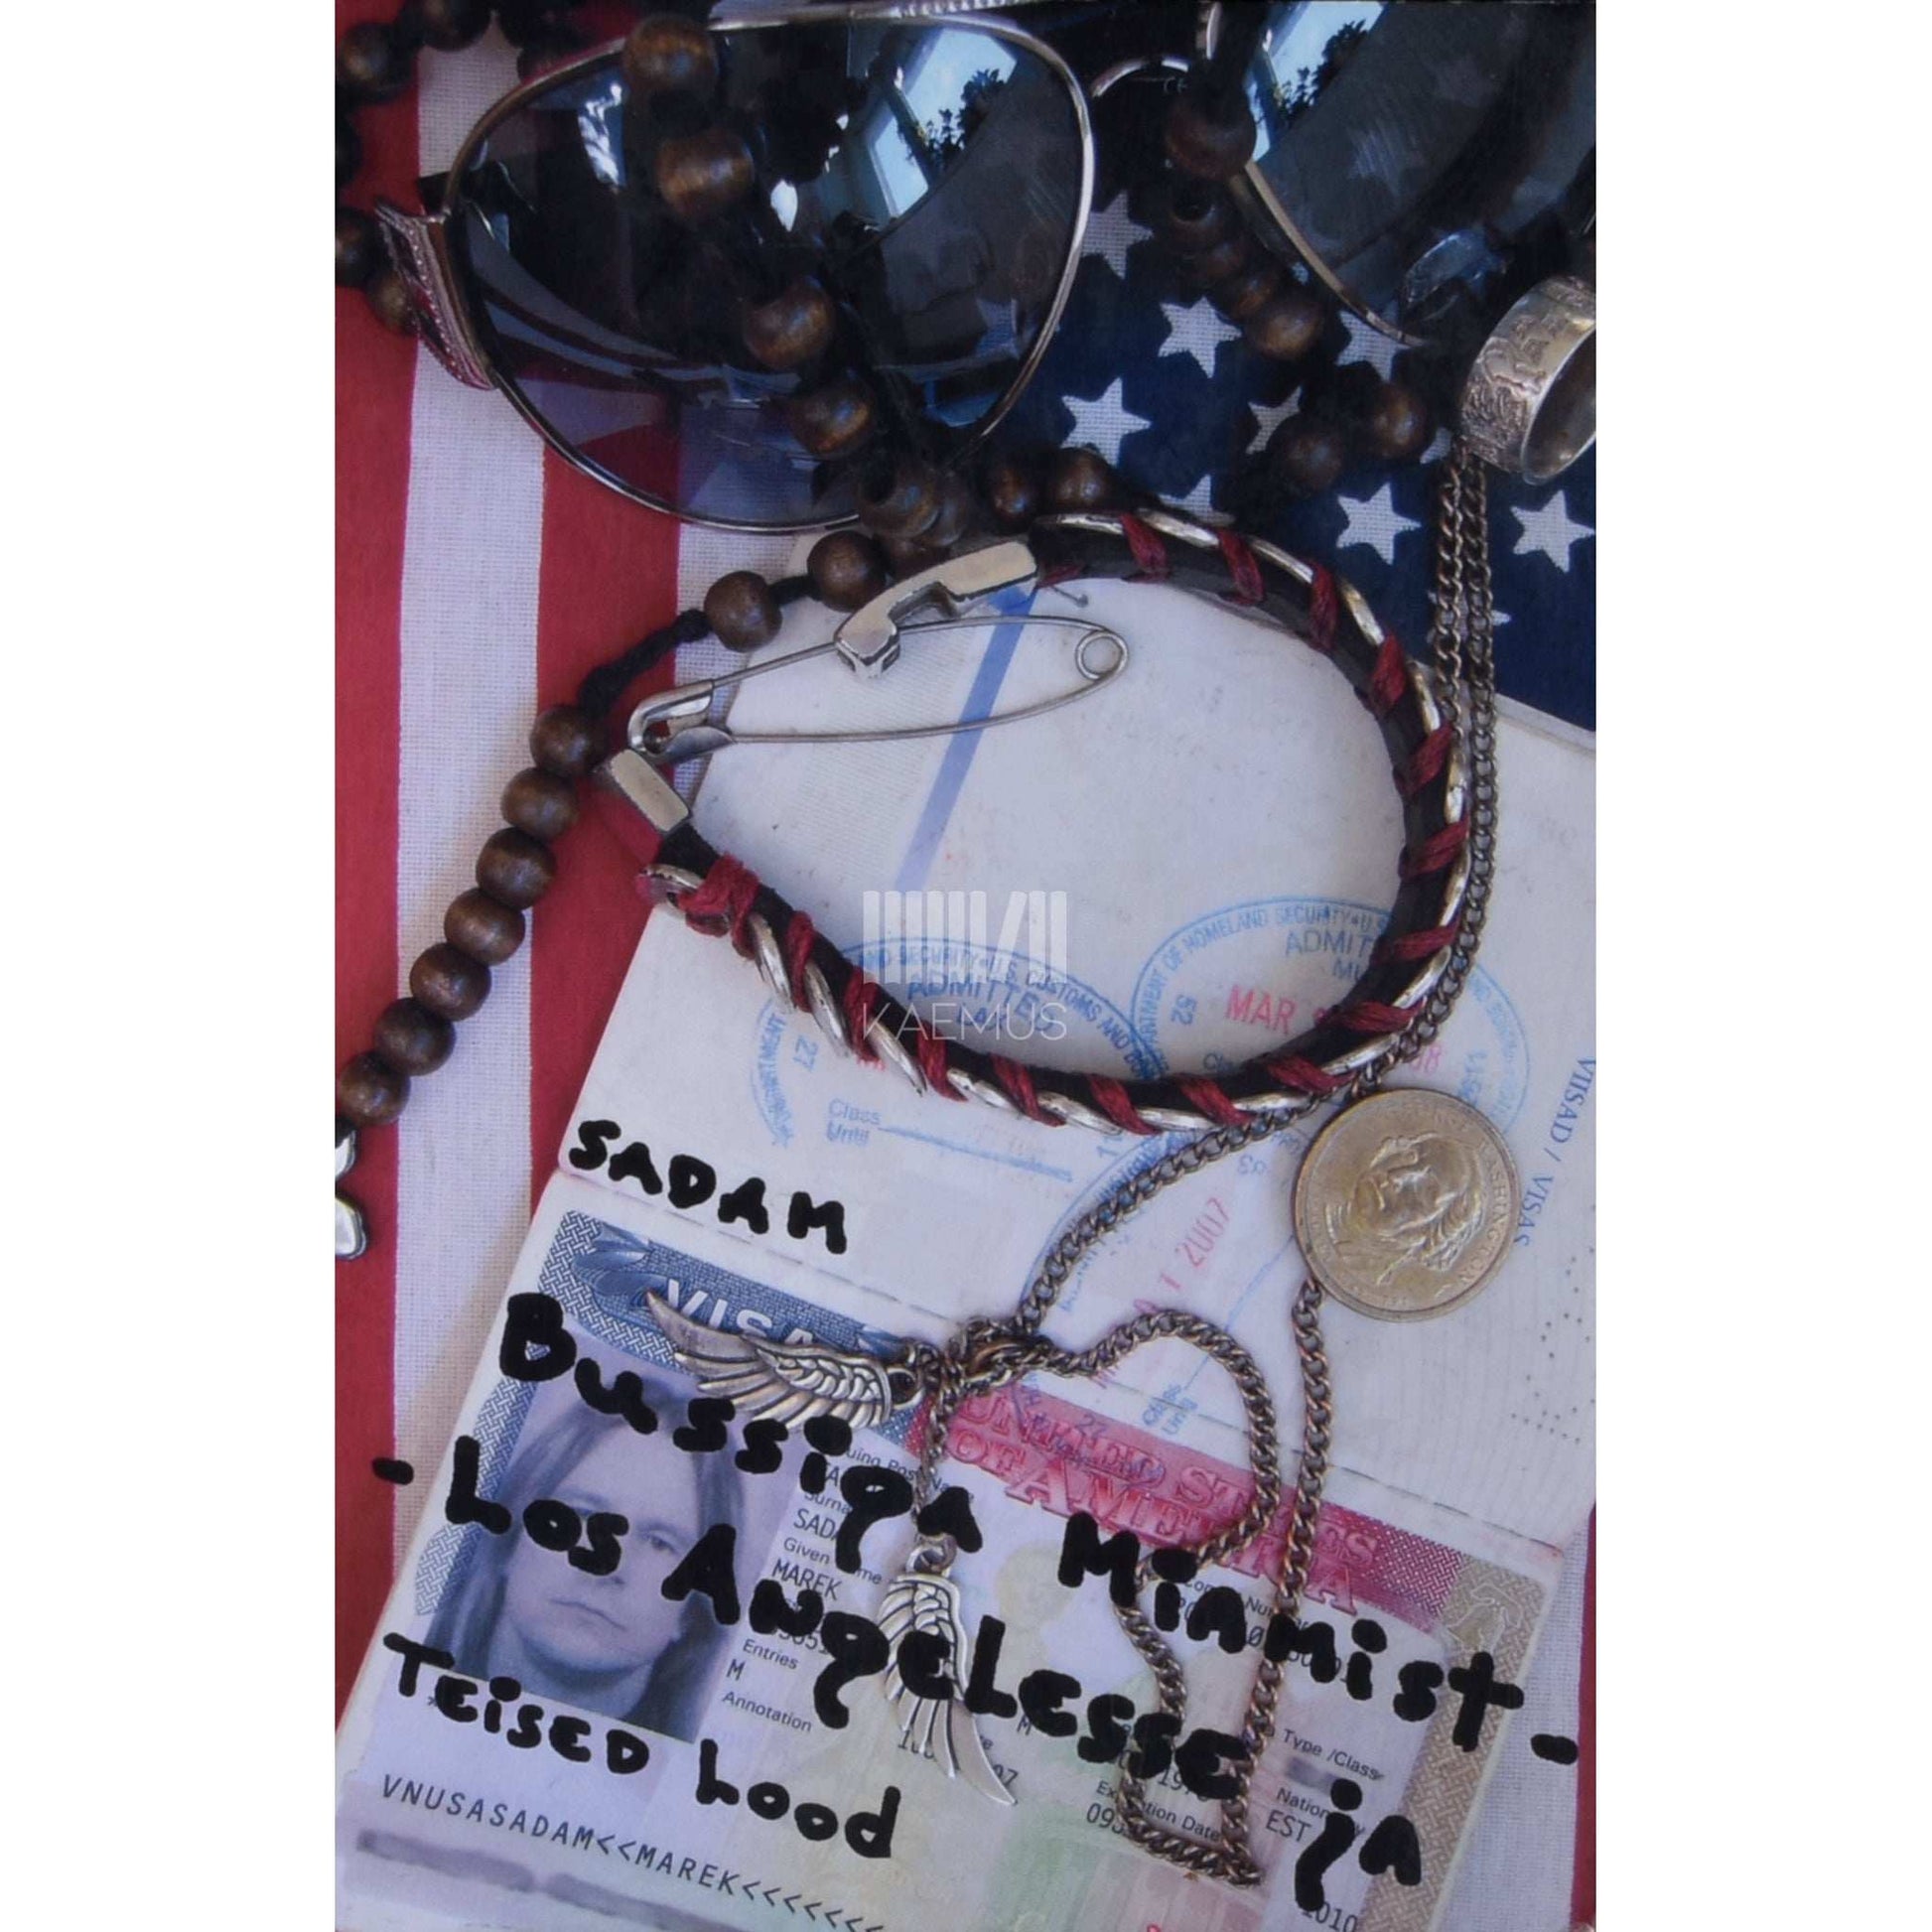 KAEMUS
ADMITTED
MAR
Class
Until
27
52
VIISAD / VISAS
1 2007
SADAM
VISA
UNITED STATES
OF AMERICA
Bussiga Miamist-
-Los Angelesse ja
Teised lood
Given
MAREK
Entries
M
Annotation
M
Type /Class
EST
VNUSASADAM<<MAREK<<<<<<<